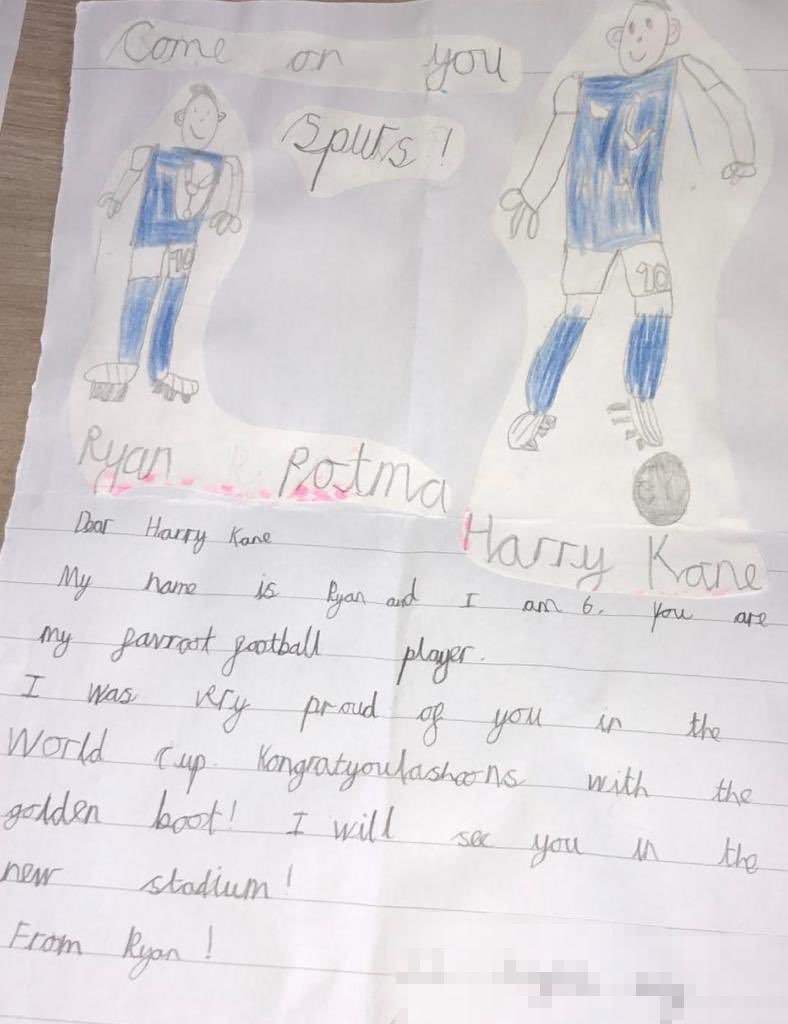 Come on you
Spurs!
10
10
Ryan Rotma
Harry Kane
Dear Harry Kane
My name is Ryan and I am 6. you are
my favroot football player.
I was very proud of you in the
World Cup. Kongratyoulashoons with the
golden boot! I will see you in the
new stadium!
From Ryan!